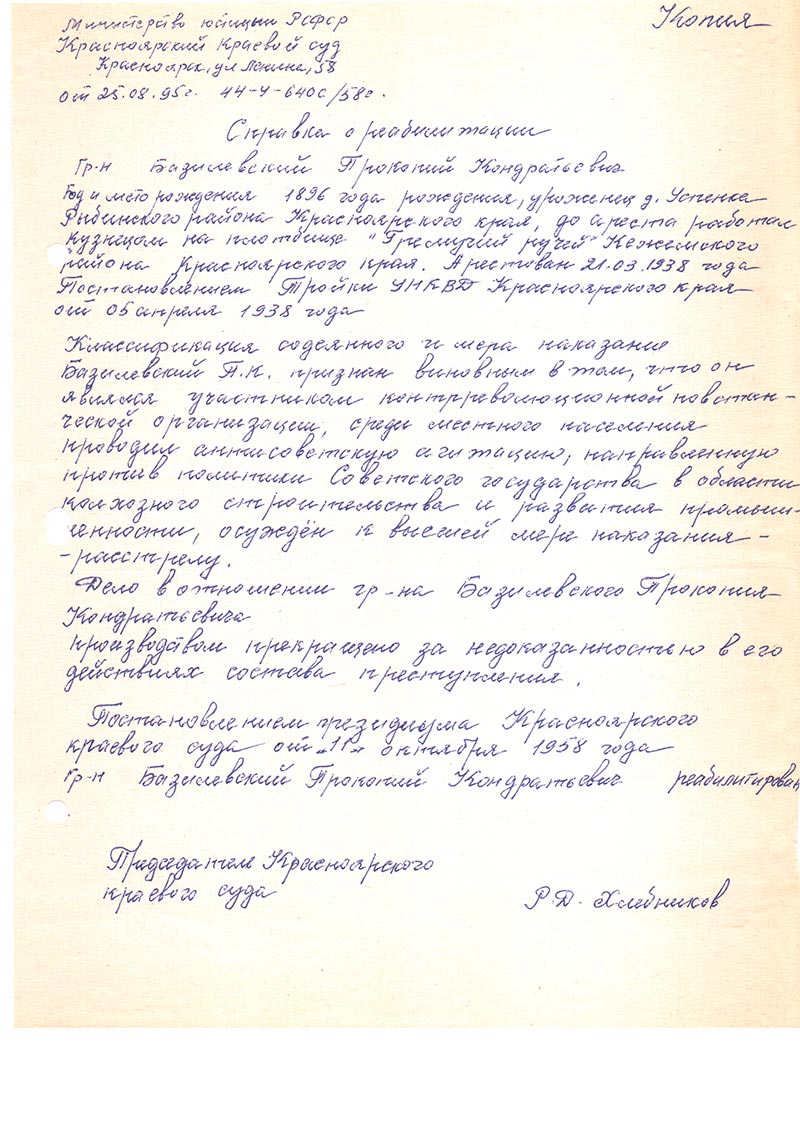 Копия
Министерство юстиции РСФСР
Красноярский Краевой суд
Красноярск, ул Ленина, 58
от 25.08.95г. 44-У-640с/58г.
Справка о реабилитации
Гр-н Базилевский Прокопий Кондратьевич
Год и место рождения 1896 года рождения, уроженец д. Успенка
Рыбинского района Красноярского края, до ареста работал
кузнецом на плотбище "Гремучий ручей" Кежемского
района Красноярского края. Арестован 21.03.1938 года
Постановлением Тройки УНКВД Красноярского края
от 05 апреля 1938 года
Классификация содеянного и мера наказание
Базилевский П.К. признан виновным в том, что он
являлся участником контрреволюционной повстан-
ческой организации, среди местного населения
проводил антисоветскую агитацию, направленную
против политики Советского государства в области
колхозного строительства и развития промыш-
ленности, осуждён к высшей мере наказания -
- расстрелу.
Дело в отношении гр-на Базилевского Прокопия
Кондратьевича
производством прекращено за недоказанностью в его
действиях состава преступления.
Постановлением президиума Красноярского
краевого суда от "11" октября 1958 года
Гр-н Базилевский Прокопий Кондратьевич реабилитирован
Председатель Красноярского
краевого суда
Р.Д. Хлебников